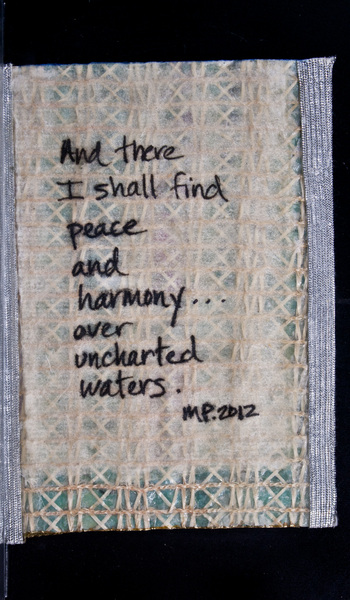 And there
I shall find
peace
and
harmony...
over
uncharted
waters.
MP.2012